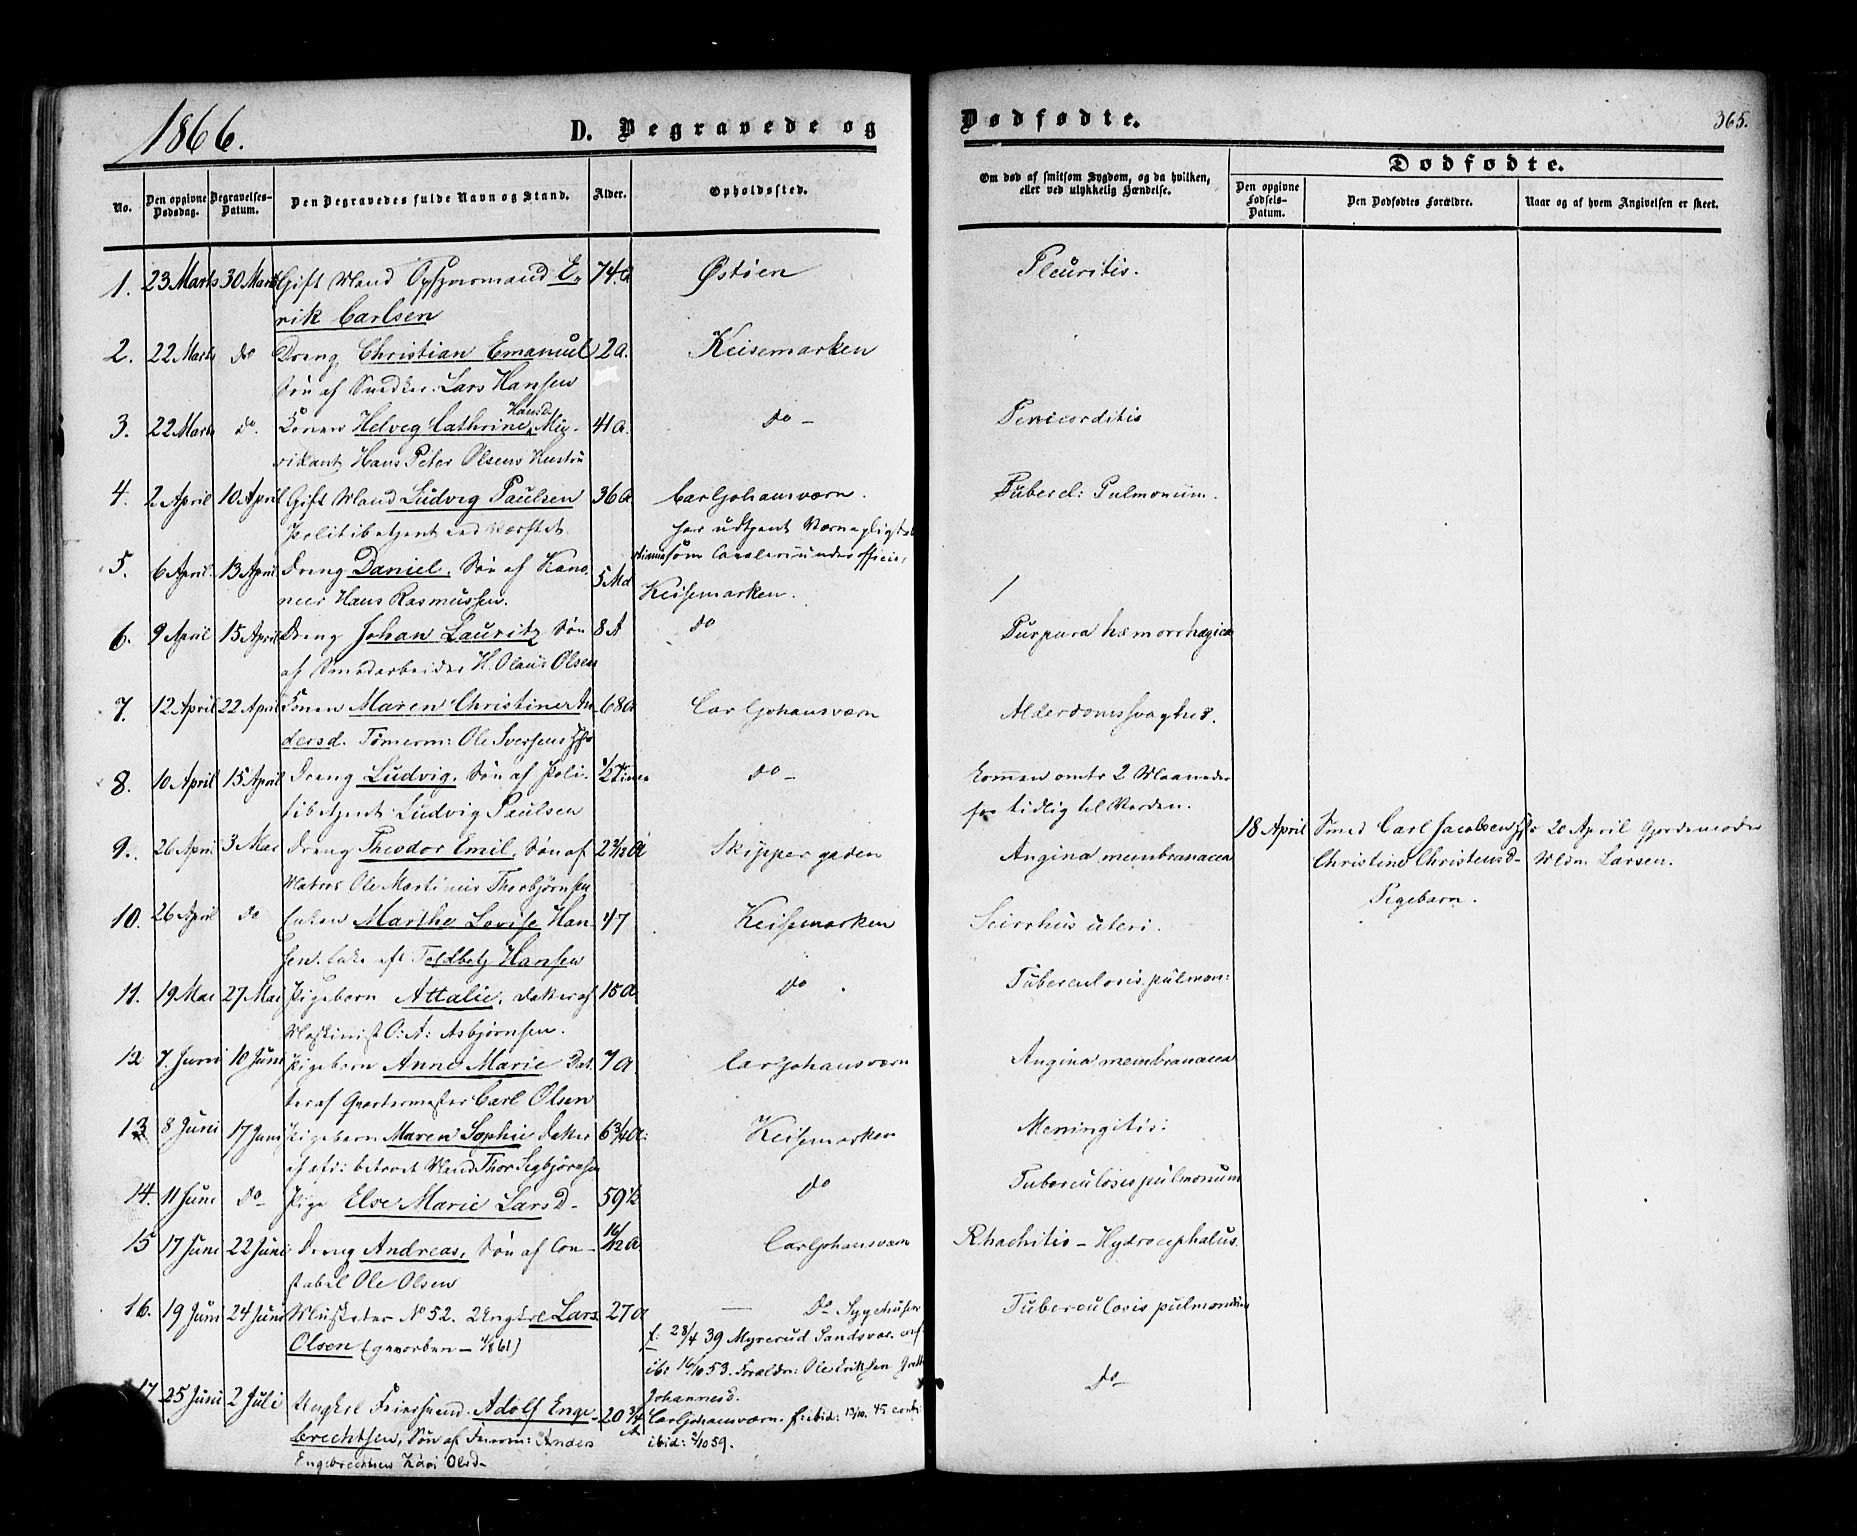 1866.
D. Begravede og
Dødfødte.
365.
No.
Den opgivne Dødsdag.
Begravelses-Datum.
Den Begravedes fulde Navn og Stand.
Alder.
Opholdssted.
Om død af smitsom Sygdom, og da hvilken, eller ved ulykkelig Hændelse.
Dødfødte.
Den opgivne Fødsels-Datum.
Den Dødfødtes Forældre.
Naar og af hvem Angivelsen er skeet.
1. 23 Marts 30 Marts Gift Mand Opsynsmand E- 74 a Østøen Pleuritis.
rik Carlsen
2. 22 Marts do Dreng Christian Emanuel 2 a. Keisemarken
Søn af Snedker Lars Hansen
3. 22 Marts do. Konen Helvig Cathrine Hansd. Mu- 41 a. do - Pericorditis
sikant Hans Peter Olsens Hustru
4. 2 April 10 April Gift Mand Ludvig Paulsen 36 a Carljohansværn. Tubercl: Pulmonum.
Politibetjent ved Værftet har udtjent Værnepligts
5. 6 April 13 April Dreng Daniel, Søn af Kano- 5 Md som underofficier,
neer Hans Rasmussen. Keisemarken. /
6. 9 April 15 April Dreng Johan Lauritz Søn 8 A do Purpura hæmorrhagica
af Smedarbeider H. Olaus Olsen
7. 12 April 22 April Konen Maren Christine An- 68 a Carljohansværn Alderdomssvaghed.
dersd. Tømerm: Ole Iversens
8. 10 April 15 April Dreng Ludvig, Søn af Poli- ½ Time do - Kommen omtr 2 Maaneder
tibetjent Ludvig Paulsen for tidlig til Verden.
18 April Smed Carl Jacobsen 20 April Gjordemoder
9. 26 April 3 Mai Dreng Theodor Emil, Søn af Skippergaden Angina membranacea Christine Christensd- Mdm Larsen.
Matros Ole Martinius Thorbjørnsen Pigebarn.
10. 26 April do Enken Marthe Lovise Han- 47 Keisemarken Scirrhus uteri.
sen. Enke eft Toldbetj Hansen
11. 19 Mai 27 Mai Pigebarn Attalie, Datter af 15 a do . Tuberculosis pulmon:
Maskinist O: A: Asbjørnsen.
12 7. Juni 10 Juni Pigebarn Anne Marie Dat- 7 a Carljohansværn Angina membranacea
ter af Qvartermester Carl Olsen
13 8 Juni 17 Juni Pigebarn Maren Sophie Datter 6 3/4 a: Keisemarken Meningitis:
af Mand Thor Sigbjørnsen
14. 11 Juni do- Pige Elve Marie Larsd- 59 ½ do Tuberculosis pulmonum
15 17 Juni 22 Juni Dreng Andreas, Søn af Con- 10/12 a Carljohansværn Rhachitis - Hydrocephalus.
stabel Ole Olsen
16. 19 Juni 24 Juni Musketer No 52. Ungkrl Lars 27 a — Do Sygehuset Tuberculosis pulmonum
Olsen (gevorben - 4/8 61) f: 28/4 39 Myrerud Sandsvær. conf
ib: 16/10 53. Foraldr: Ole Eriksen
17 25 Juni 2 Juli Ungkrl Adolf Enge- 20 3/4 A Johannesd. Do-
brechtsen, Søn af Anders Carljohansværn. f: ibid: 13/10. 45 conf:
Engebrechtsen Kari Olsd- ibid: 2/10 59.